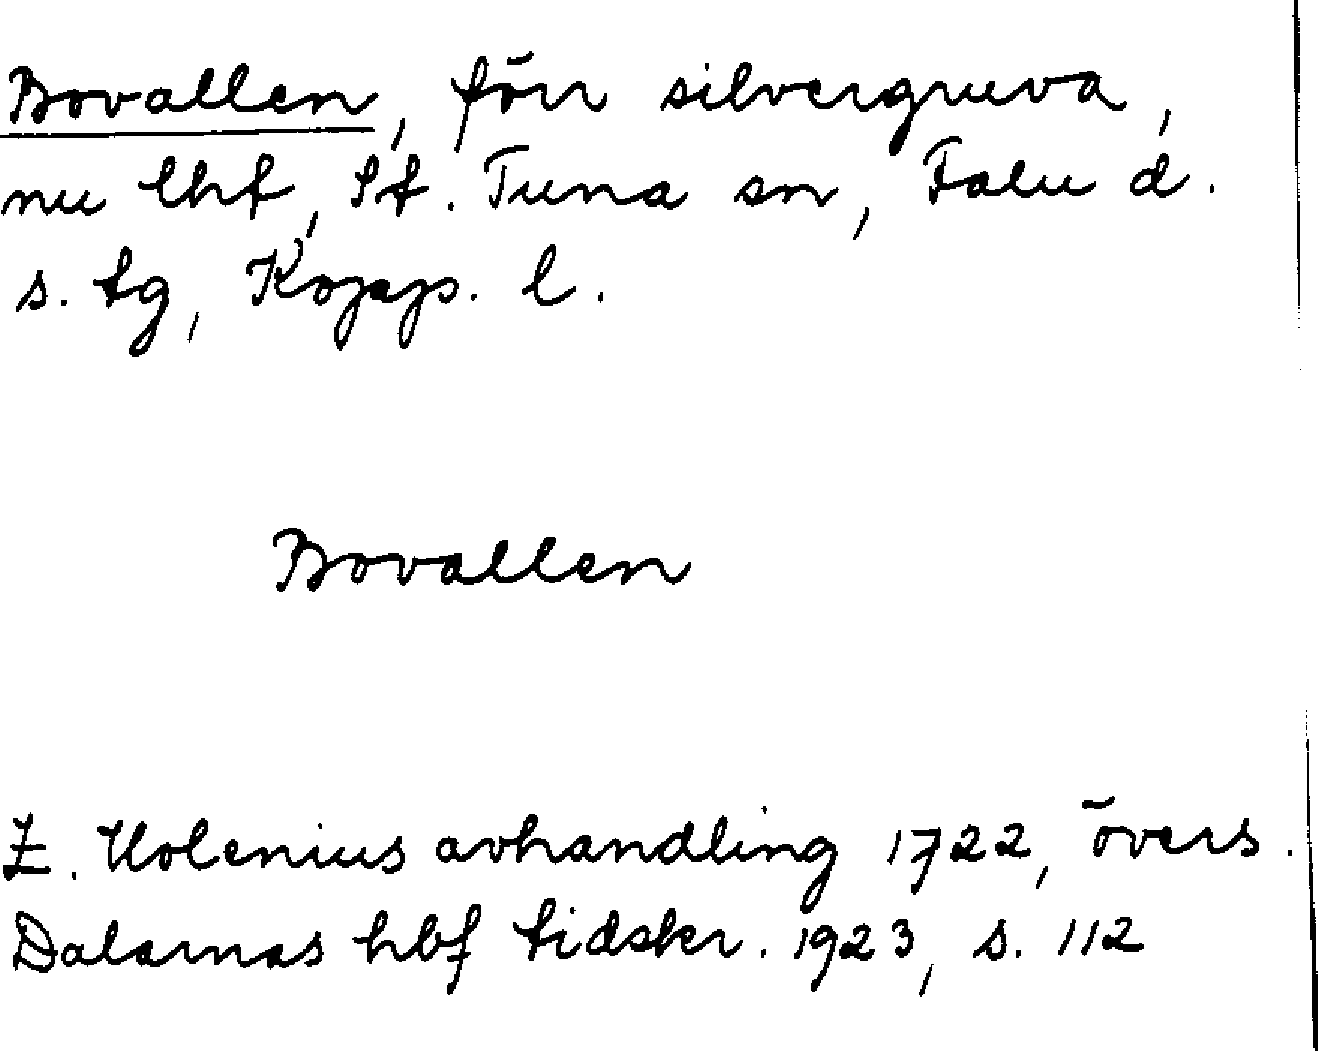 Bovallen, förr silvergruva,
nu lhf, St. Tuna sn, Falu d.
s. tg, Kopp. l.
Bovallen
Z. Holenius avhandling 1722, övers.
Dalarnas hbf tidskr. 1923, s. 112